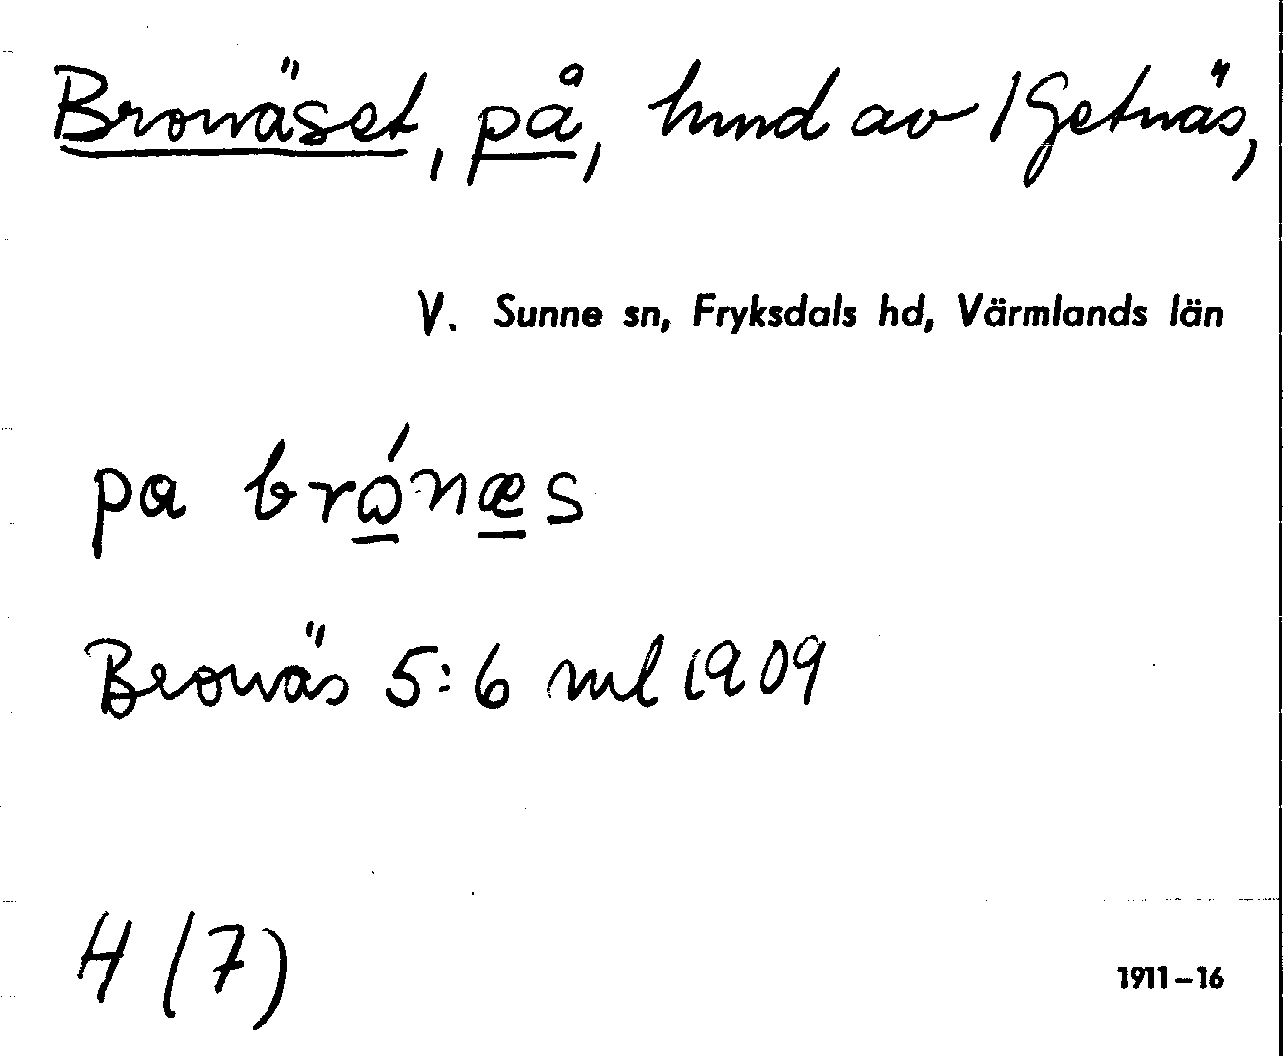 Bronäset, på, hmd av 1 Getnäs,
V. Sunne sn, Fryksdals hd, Värmlands län
pa brǫ́næ̲s
Bronäs 5:6 ml 1909
H (7)
1911–16